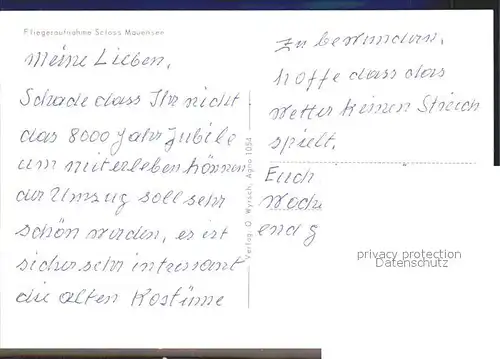 Fliegeraufnahme Scloss Mauensee
Meine Lieben,
Schade dass Ihr nicht
das 8000 Jahr Jubile
um miterleben können
der Umzug soll sehr
schön werden, es ist
sicher sehr interssant
die alten Kostüme
Verlag O. Wyrsch, Agno 1054
zu bewundern,
hoffe dass das
Wetter keinen Streich
spielt.
Euch
Woche
end g
privacy protection
Datenschutz